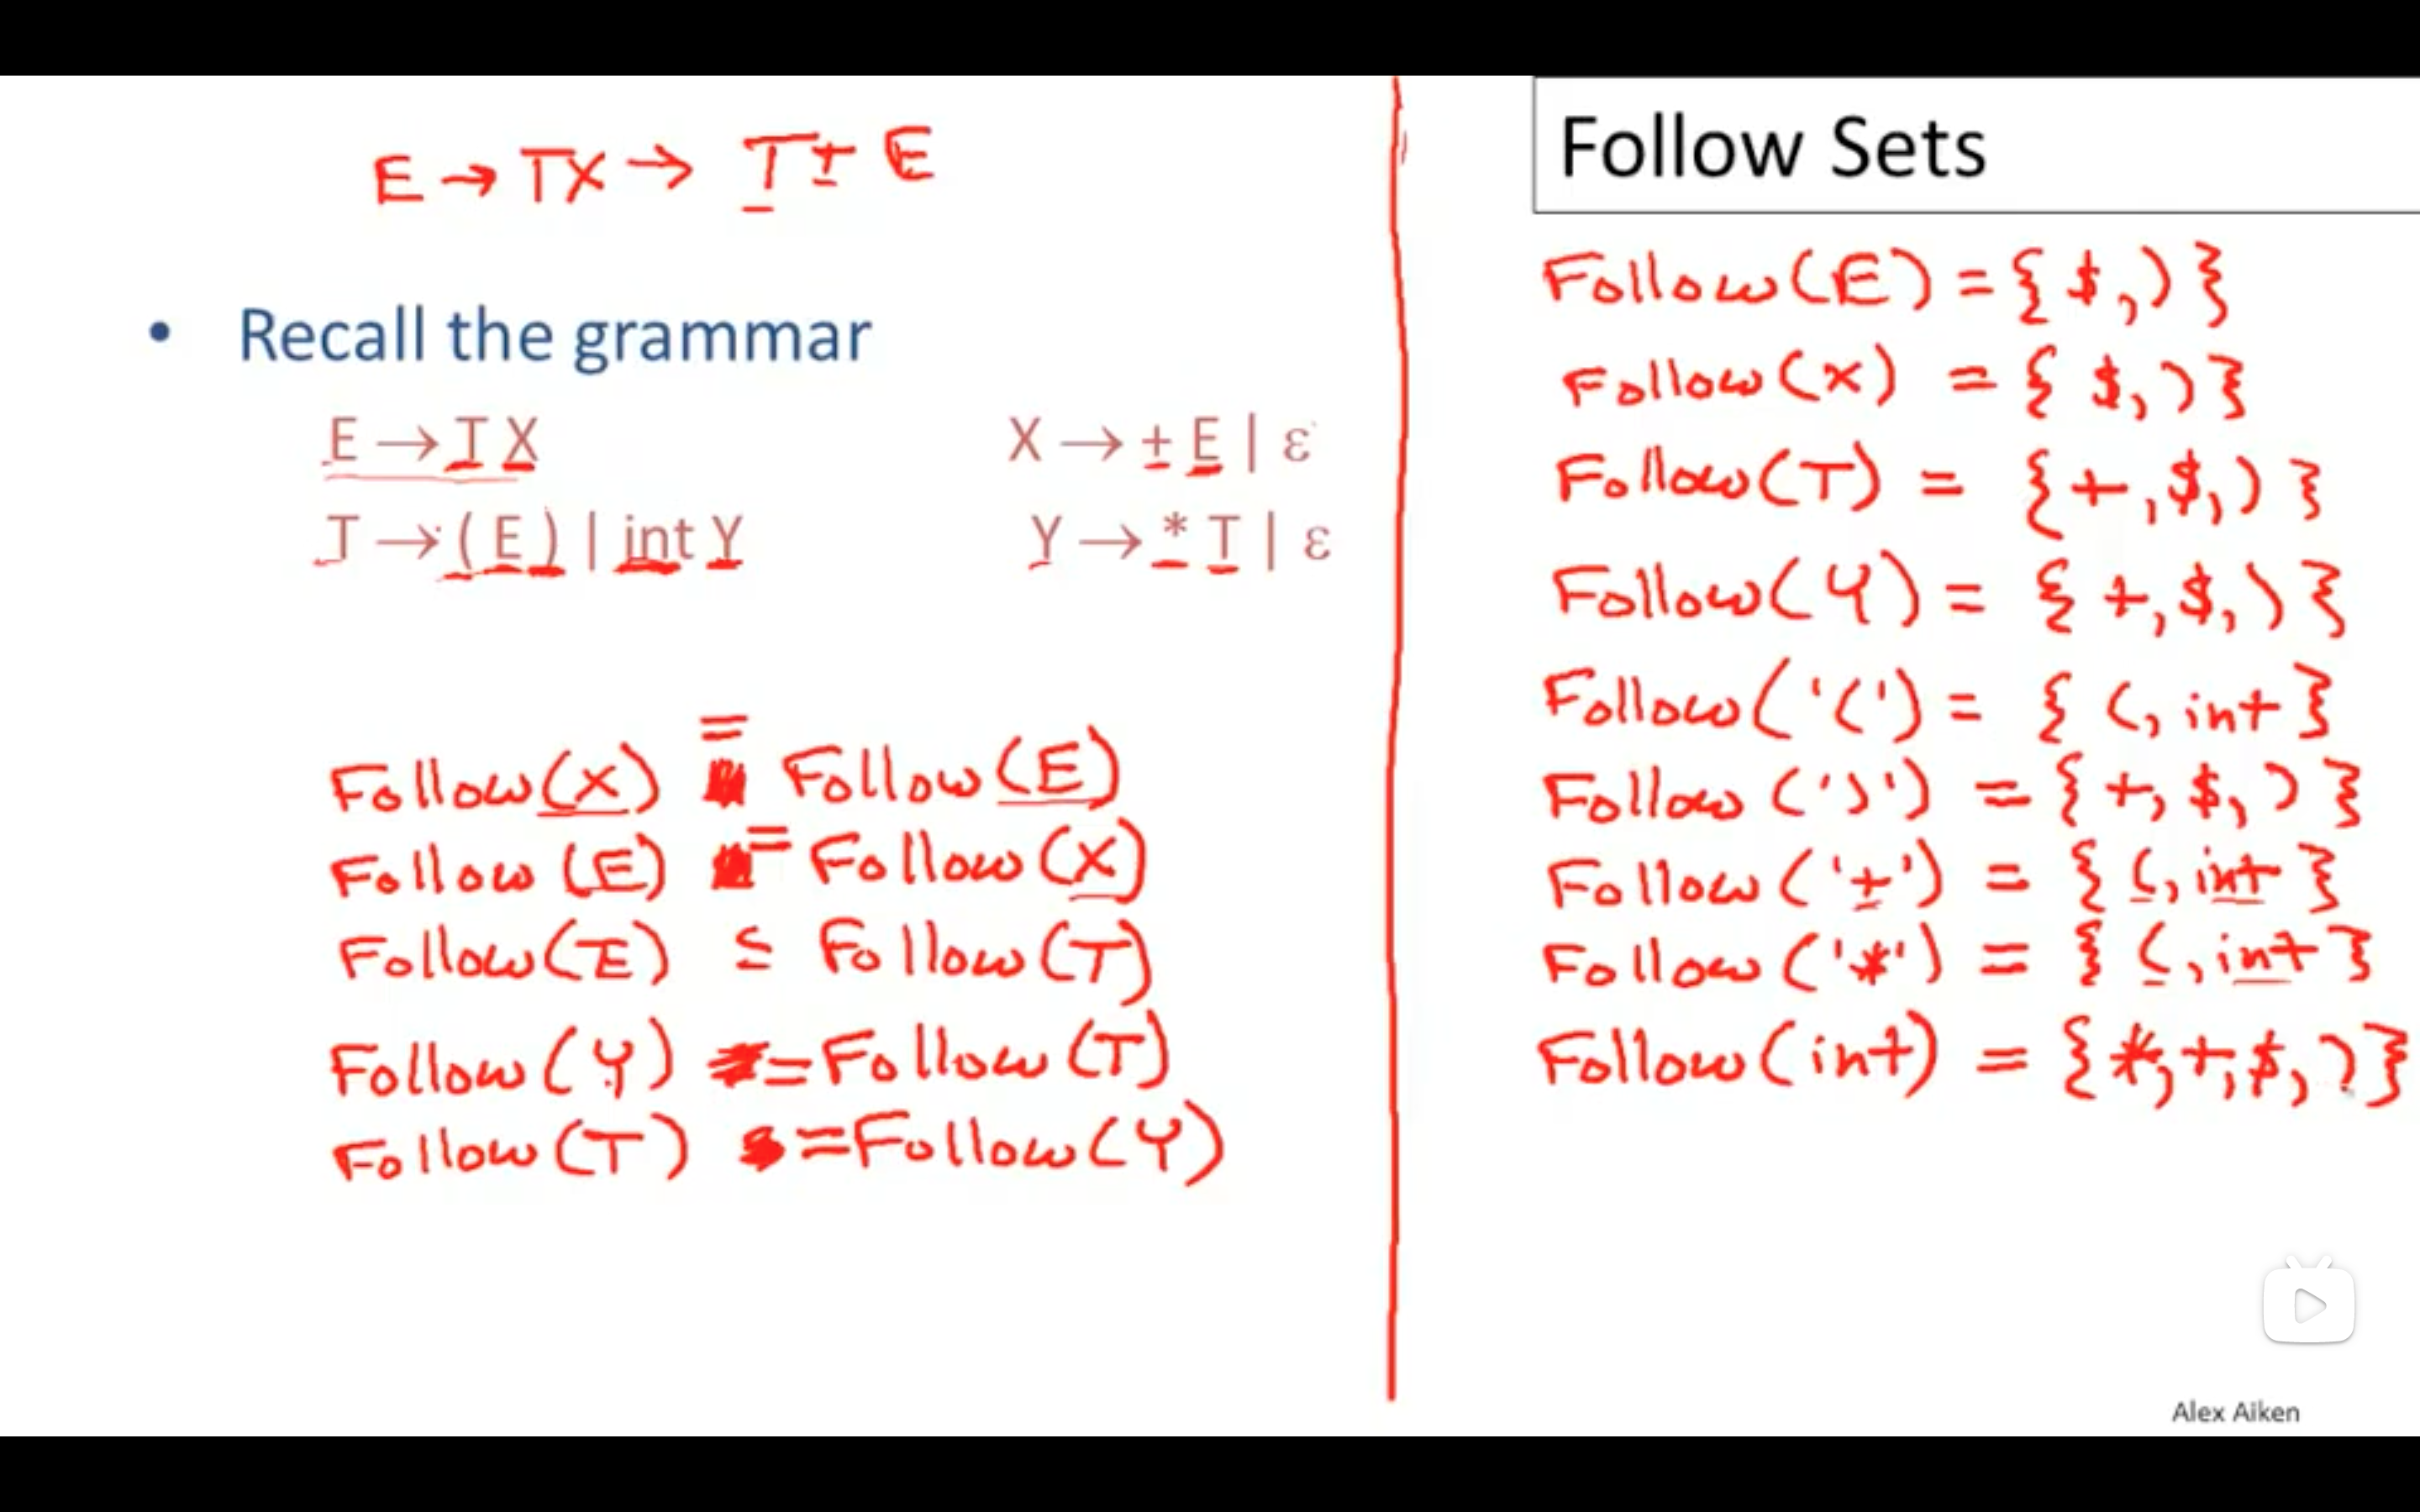 E → TX → T + E
• Recall the grammar
E → T X
X → + E | ε
T → ( E ) | int Y
Y → * T | ε
Follow(X) = Follow(E)
Follow(E) = Follow(X)
Follow(E) ⊆ Follow(T)
Follow(Y) = Follow(T)
Follow(T) = Follow(Y)
Follow Sets
Follow(E) = { $, ) }
Follow(X) = { $, ) }
Follow(T) = { +, $, ) }
Follow(Y) = { +, $, ) }
Follow('(') = { (, int }
Follow(')') = { +, $, ) }
Follow('+') = { (, int }
Follow('*') = { (, int }
Follow(int) = { *, +, $, ) }
Alex Aiken